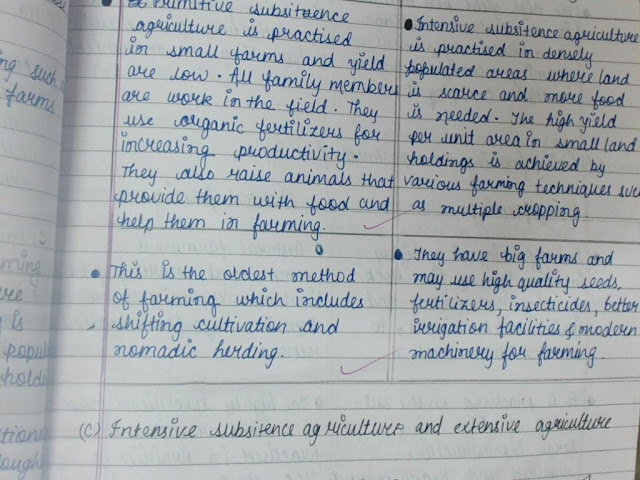 Primitive subsitence
agriculture is practised
in small farms and yield
are low. All family members
are work in the field. They
use organic fertilizers for
increasing productivity.
They also raise animals that
provide them with food and
help them in farming.
This is the oldest method
of farming which includes
shifting cultivation and
nomadic herding.
Intensive subsitence agriculture
is practised in densely
populated areas where land
is scarce and more food
is needed. The high yield
per unit area in small land
holdings is achieved by
various farming techniques such
as multiple cropping.
They have big farms and
may use high quality seeds,
fertilizers, insecticides, better
irrigation facilities & modern
machinery for farming.
(C) Intensive subsitence agriculture and extensive agriculture